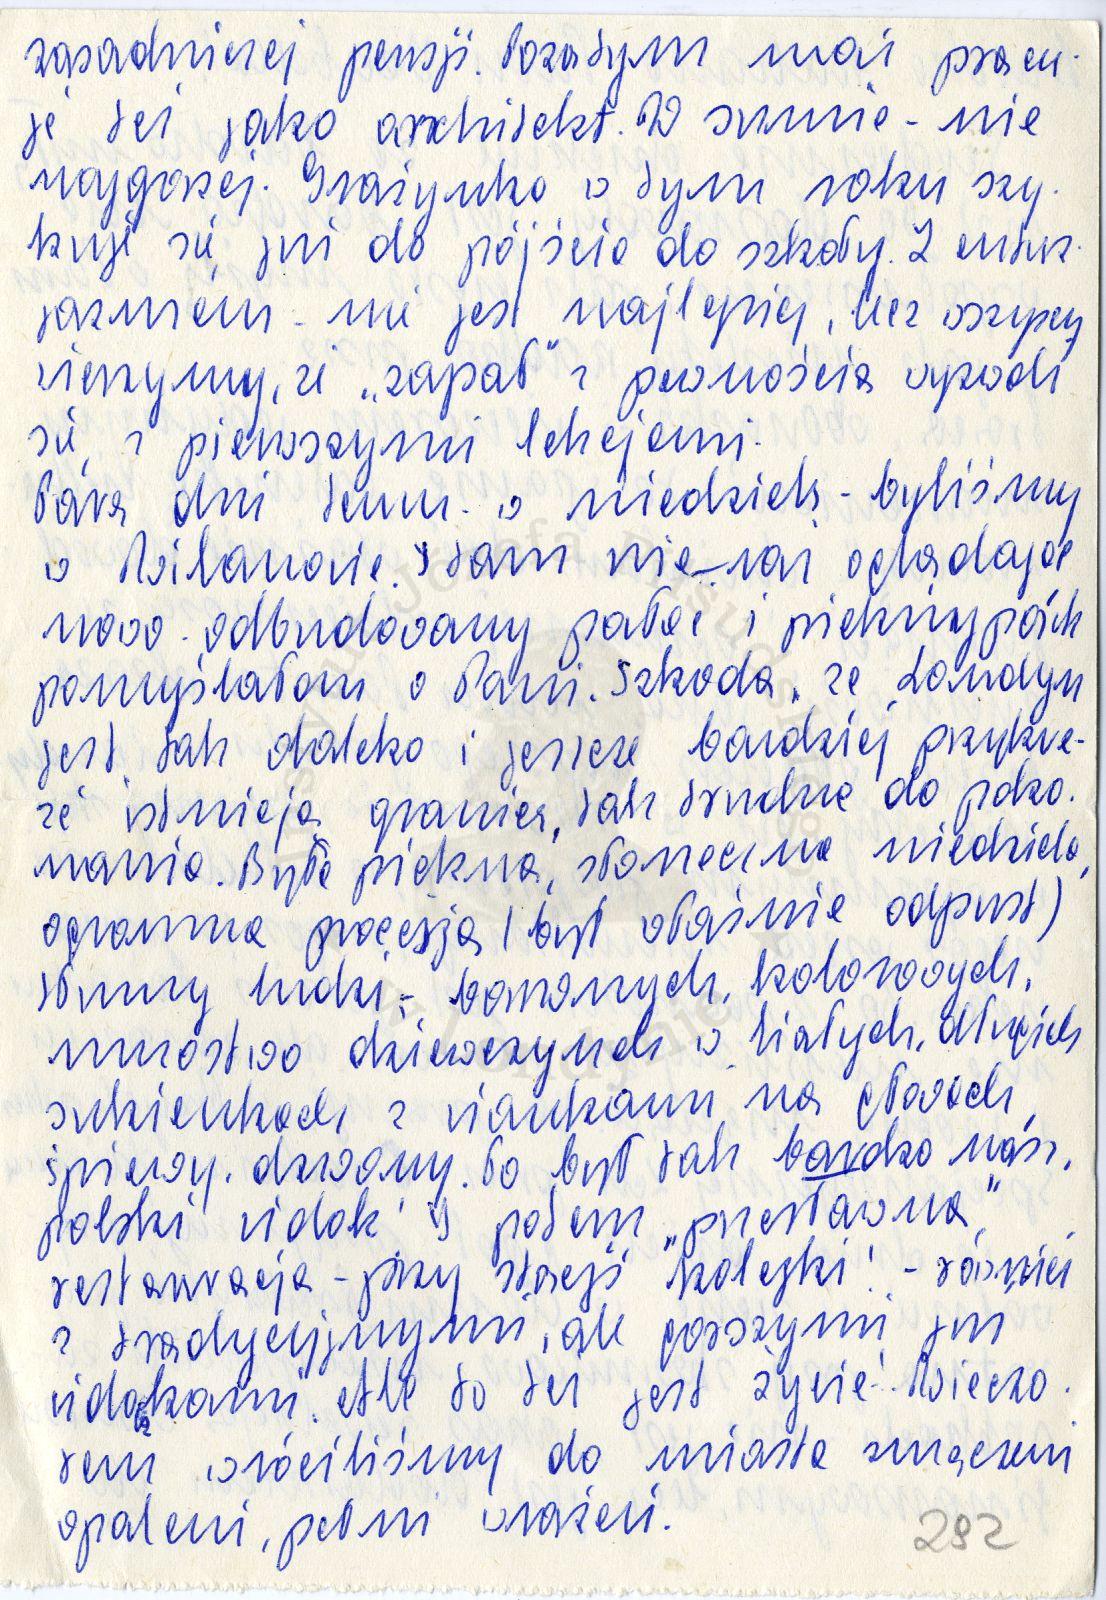 zasadniczej pensji. Pozatym mąż pracu-
je też jako architekt. W sumie - nie
najgorzej. Grażynka w tym roku szy-
kuje się już do pójścia do szkoły. Z entuz-
jazmem - nie jest najlepiej, lecz wszyscy
wierzymy, że „zapał" z pewnością wzrodi
się z pierwszymi lekcjami.
Parę dni temu - w niedzielę - byliśmy
w Wilanowie. I tam nie-raz oglądając
nowo-odbudowany pałac i piękny park
pomyślałam o Pani. Szkoda, że Londyn
jest tak daleko i jeszcze bardziej przykre-
że istnieją granice, tak trudne do poko-
nania. Była piękna, słoneczna niedziela,
ogromna procesja (był właśnie odpust)
tłumy ludzi - barwnych, kolorowych,
mnóstwo dziewczynek w białych, długich
sukienkach z wiankami na głowach,
śpiewy, dzwony. To był tak bardzo nasz,
polski widok! I potem „przesławna"
restauracja - przy stacji „kolejki" - również
z tradycyjnymi, ale gorszymi już
widokami. Ale to też jest życie! Wieczo-
rem wróciliśmy do miasta zmęczeni
opaleni, pełni wrażeń.
292
Józefa Piłsudskiego
w Londynie